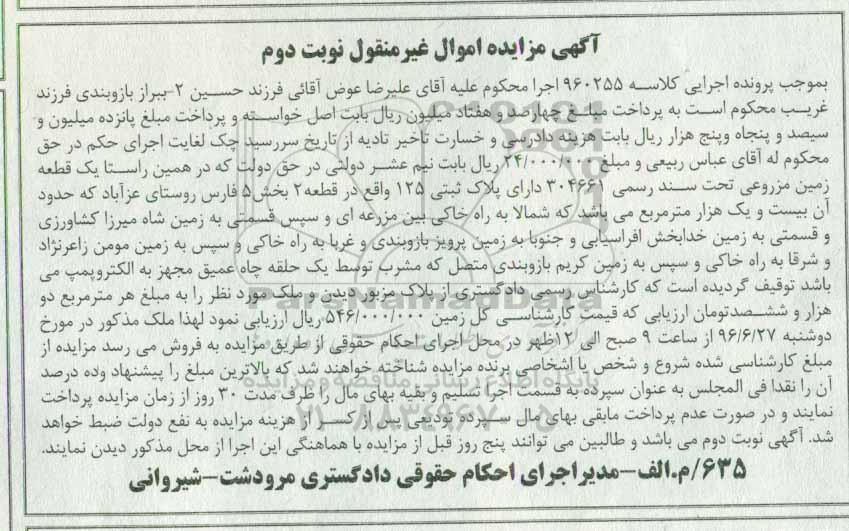 آگهی مزایده اموال غیرمنقول نوبت دوم
بموجب پرونده اجرایی کلاسه ۹۶۰۲۵۵ اجرا محکوم علیه آقای علیرضا عوض آقائی فرزند حسین ۲-ببراز بازوبندی فرزند
غریب محکوم است به پرداخت مبلغ چهارصد و هفتاد میلیون ریال بابت اصل خواسته و پرداخت مبلغ پانزده میلیون و
سیصد و پنجاه وپنج هزار ریال بابت هزینه دادرسی و خسارت تاخیر تادیه از تاریخ سررسید چک لغایت اجرای حکم در حق
محکوم له آقای عباس ربیعی و مبلغ ۲۴/۰۰۰/۰۰۰ ریال بابت نیم عشر دولتی در حق دولت که در همین راستا یک قطعه
زمین مزروعی تحت سند رسمی ۳۰۴۶۶۱ دارای پلاک ثبتی ۱۲۵ واقع در قطعه۲ بخش۵ فارس روستای عزآباد که حدود
آن بیست و یک هزار مترمربع می باشد که شمالا به راه خاکی بین مزرعه ای و سپس قسمتی به زمین شاه میرزا کشاورزی
و قسمتی به زمین خدابخش افراسیابی و جنوبا به زمین پرویز بازوبندی و غربا به راه خاکی و سپس به زمین مومن زاعرنژاد
و شرقا به راه خاکی و سپس به زمین کریم بازوبندی متصل که مشرب توسط یک حلقه چاه عمیق مجهز به الکتروپمپ می
باشد توقیف گردیده است که کارشناس رسمی دادگستری از پلاک مزبور دیدن و ملک مورد نظر را به مبلغ هر مترمربع دو
هزار و ششصدتومان ارزیابی که قیمت کارشناسی کل زمین ۵۴۶/۰۰۰/۰۰۰ ریال ارزیابی نمود لهذا ملک مذکور در مورخ
دوشنبه ۹۶/۶/۲۷ از ساعت ۹ صبح الی ۱۲ظهر در محل اجرای احکام حقوقی از طریق مزایده به فروش می رسد مزایده از
مبلغ کارشناسی شده شروع و شخص یا اشخاصی برنده مزایده شناخته خواهند شد که بالاترین مبلغ را پیشنهاد وده درصد
آن را نقدا فی المجلس به عنوان سپرده به قسمت اجرا تسلیم و بقیه بهای مال را ظرف مدت ۳۰ روز از زمان مزایده پرداخت
نمایند و در صورت عدم پرداخت مابقی بهای مال سپرده تودیعی پس از کسر از هزینه مزایده به نفع دولت ضبط خواهد
شد. آگهی نوبت دوم می باشد و طالبین می توانند پنج روز قبل از مزایده با هماهنگی این اجرا از محل مذکور دیدن نمایند.
۶۳۵/م.الف-مدیراجرای احکام حقوقی دادگستری مرودشت-شیروانی
ParsNamadData
پایگاه اطلاع رسانی مناقصه و مزایده